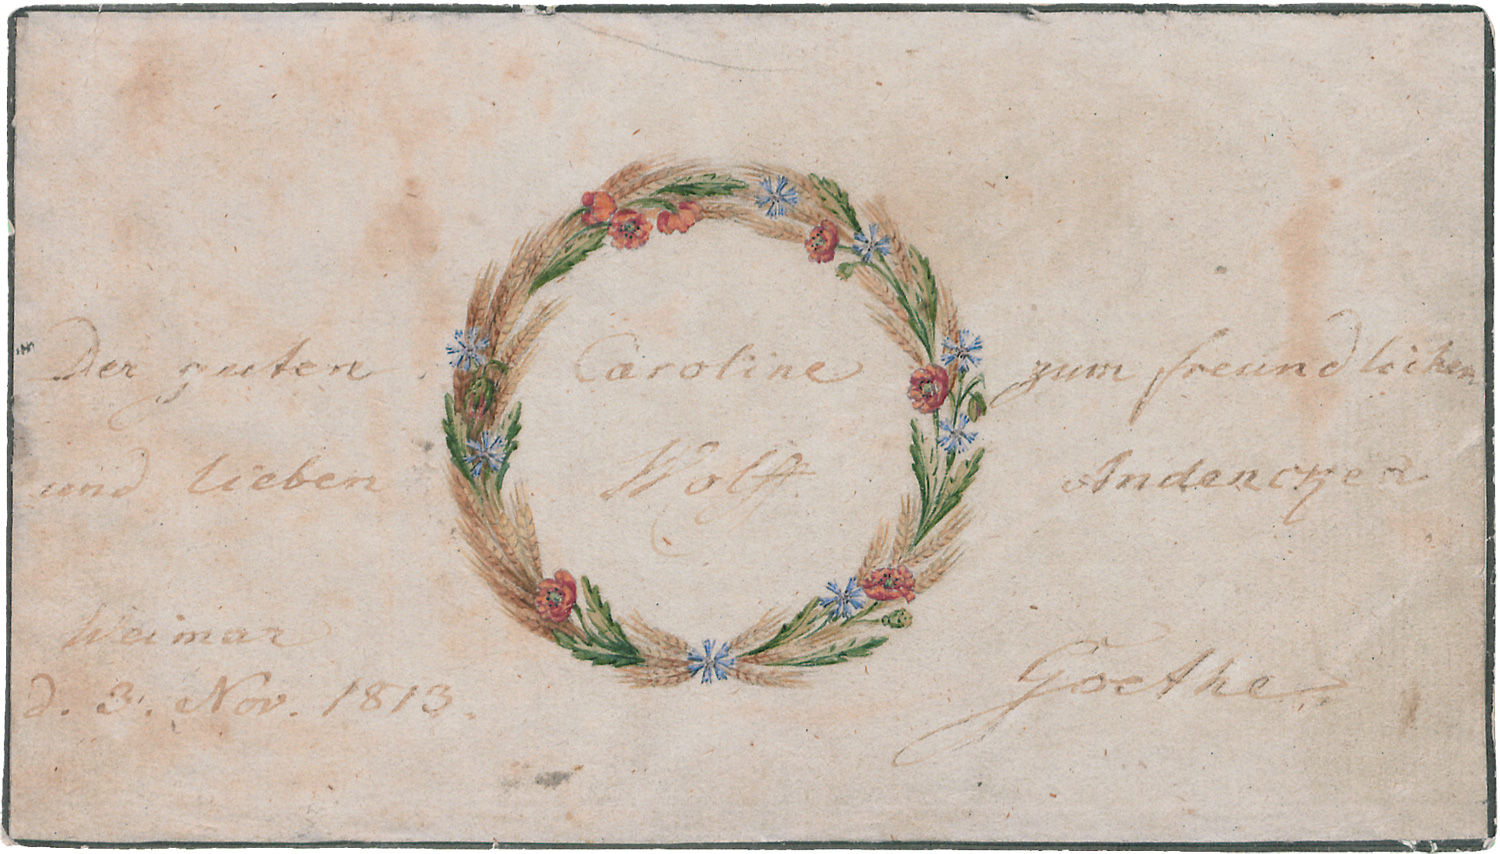 Der guten Caroline zum freundlichen
und lieben Wolff. Andencken
Weimar
d. 3. Nov. 1813.
Goethe